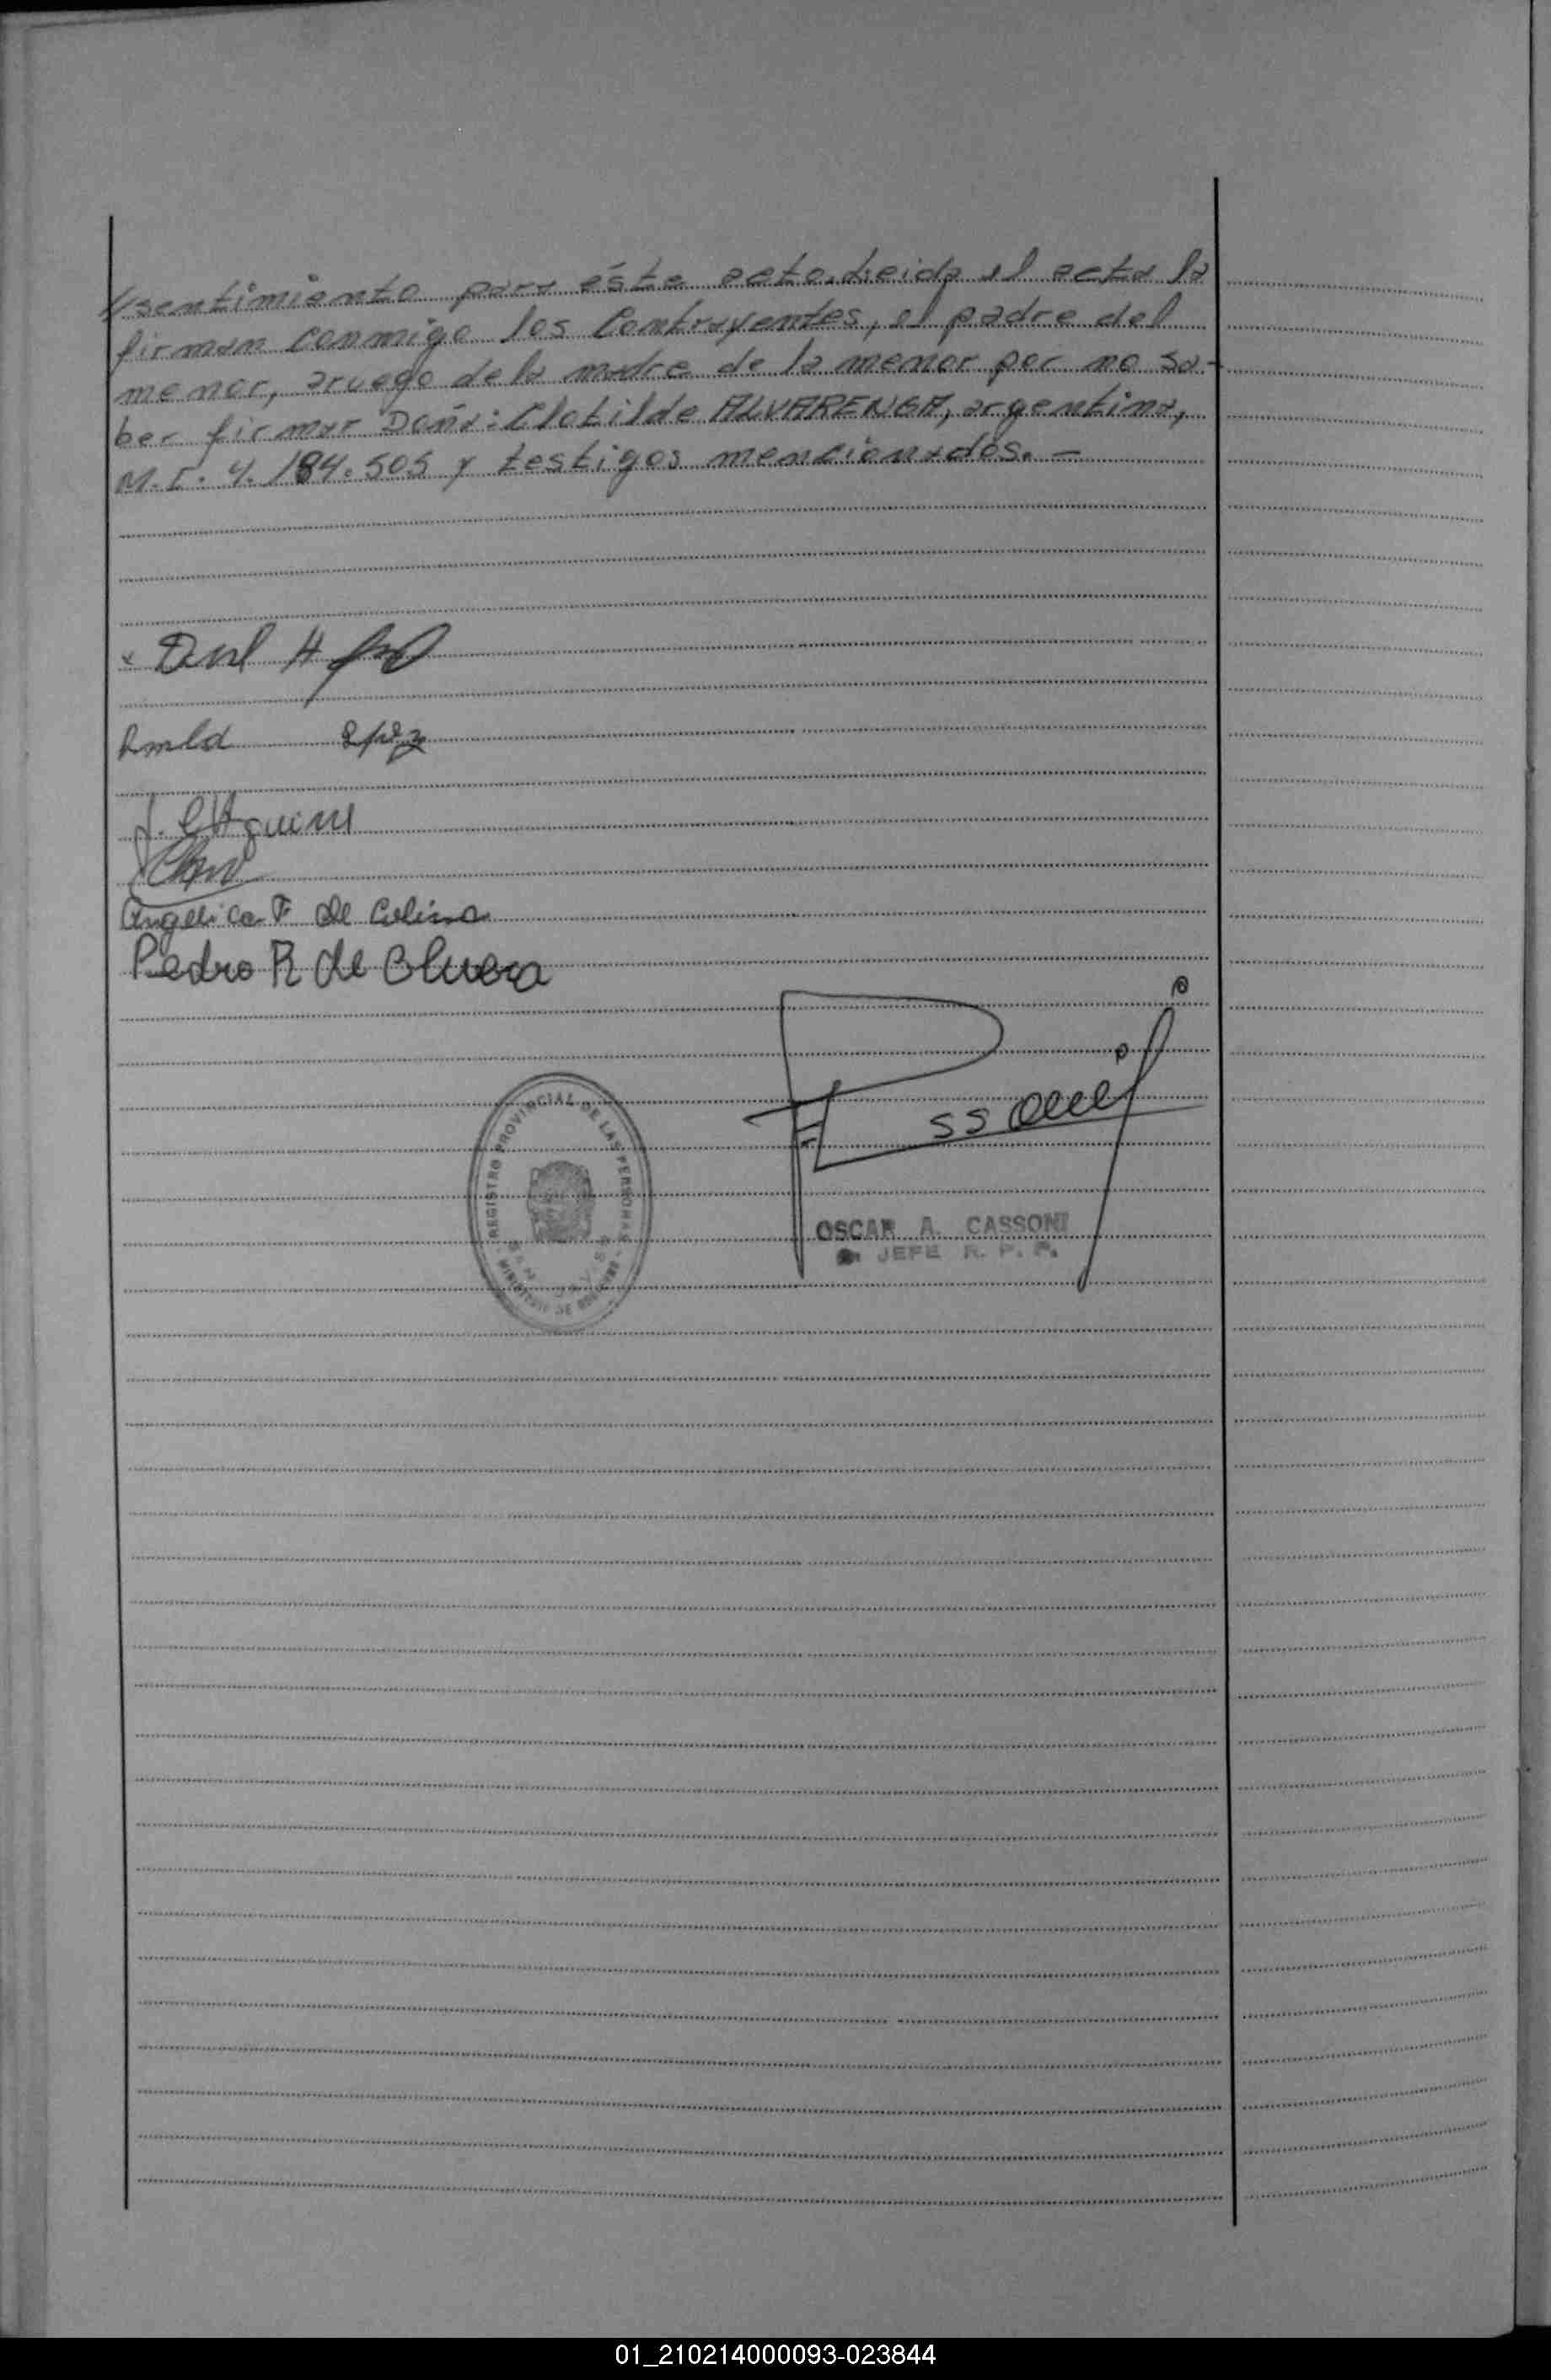 //sentimiento para éste acto. Leida el acta la
firman conmigo los Contrayentes, el padre del
menor, aruego de la madre de la menor por no sa-
ber firmar Doña: Clotilde ALVARENGA, argentina,
M.I. 4.184.505 y testigos mencionados. -
Angelica F de
Pedro R de Olivera
REGISTRO PROVINCIAL DE LAS PERSONAS
MINISTERIO DE GOBIERNO
OSCAR A. CASSONI
JEFE R. P. P.
01_210214000093-023844